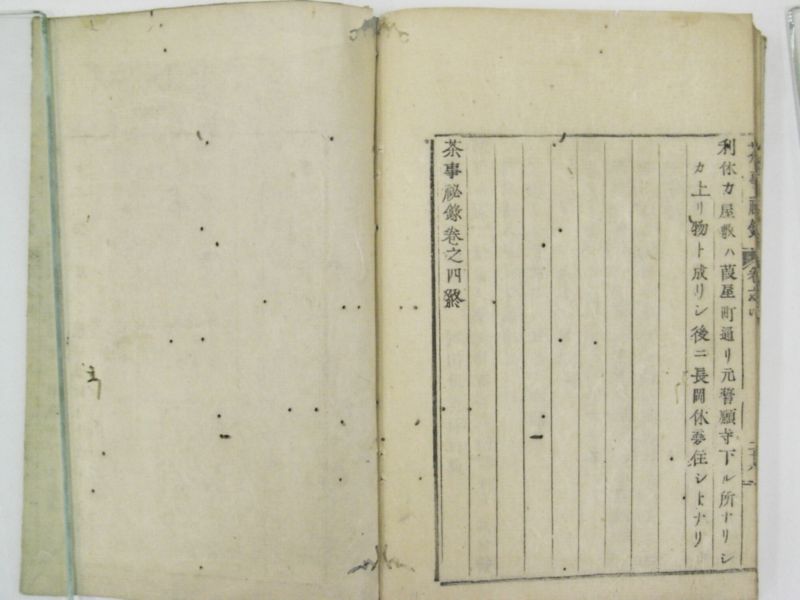 利休カ屋敷ハ葭屋町通リ元誓願寺下ル所ナリシ
カ上リ物ト成リシ後ニ長岡休夢住シトナリ
茶事祕錄卷之四終